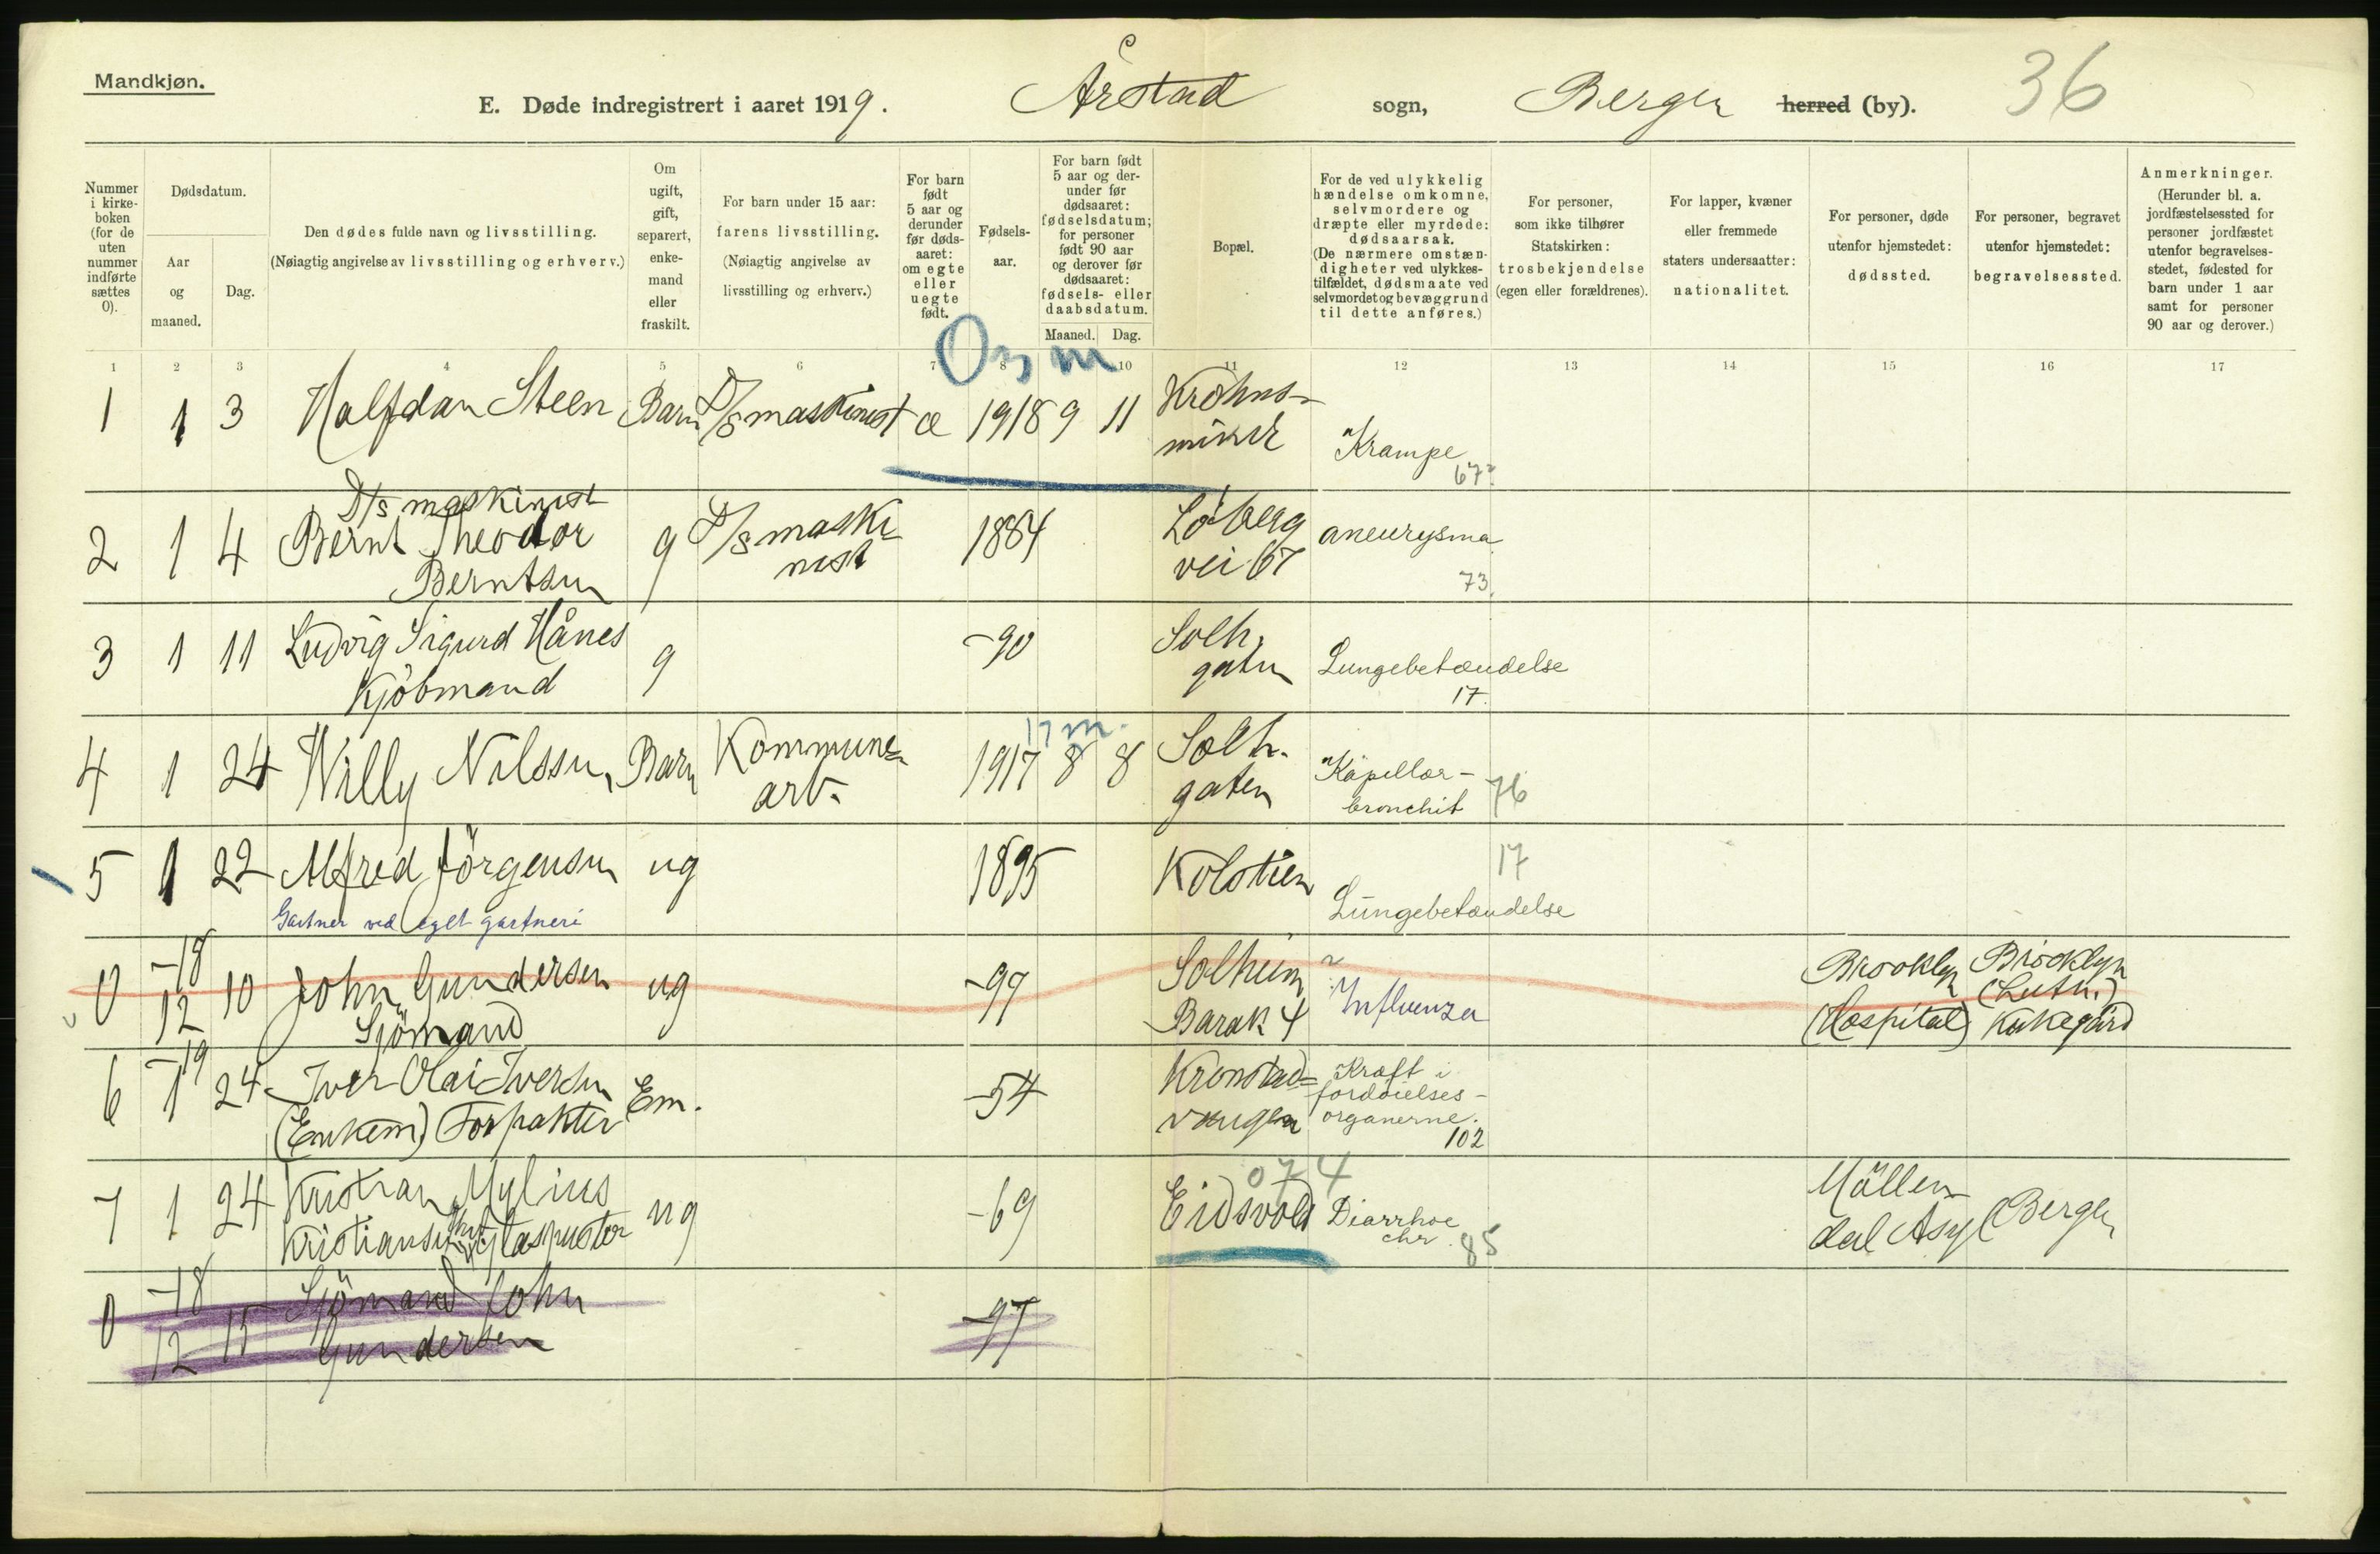 Mandkjøn.
E. Døde indregistrert i aaret 1919. Årstad sogn, Bergen herred (by). 36
Nummer i kirkeboken (for de uten nummer indførte sættes 0).
Dødsdatum.
Aar og maaned.
Dag.
Den dødes fulde navn og livsstilling.
(Nøiagtig angivelse av livsstilling og erhverv.)
Om ugift, gift, separert, enkemand eller fraskilt.
For barn under 15 aar: farens livsstilling.
(Nøiagtig angivelse av livsstilling og erhverv.)
For barn født 5 aar og derunder før dødsaaret: om egte eller uegte født.
Fødselsaar.
For barn født 5 aar og derunder før dødsaaret: fødselsdatum; for personer født 90 aar og derover før dødsaaret: fødsels- eller daabsdatum.
Maaned. Dag.
Bopæl.
For de ved ulykkelig hændelse omkomne, selvmordere og dræpte eller myrdede: dødsaarsak.
(De nærmere omstændigheter ved ulykkestilfældet, dødsmaate ved selvmordet og bevæggrund til dette anføres.)
For personer, som ikke tilhører Statskirken: trosbekjendelse (egen eller forældrenes).
For lapper, kvæner eller fremmede staters undersaatter: nationalitet.
For personer, døde utenfor hjemstedet: dødssted.
For personer, begravet utenfor hjemstedet: begravelsessted.
Anmerkninger.
(Herunder bl. a. jordfæstelsessted for personer jordfæstet utenfor begravelsesstedet, fødested for barn under 1 aar samt for personer 90 aar og derover.)
1 2 3 4 5 6 7 8 10 11 12 13 14 15 16 17
1 1 3 Halfdan Steen Barn D/s maskinist æ 1918 9 11 Krohns-
minde Krampe
67
D/s maskinist
2 1 4 Bernt Theodor g D/s maski- 1884 Løberg aneurysma
Berntsen nist vei 67 73.
3 1 11 Ludvig Sigurd Hånes g -90 Solh. Lungebetændelse
Kjöbmand gaten 17.
17 m.
4 1 24 Willy Nilssen Barn Kommune- 1917 8 8 Solh. Kapillær-
arb. gaten bronchit 76
5 1 22 Alfred Jörgensen ug 1895 Kolstien 17
Gartner ved eget gartneri Lungebetændelse
0 -18 10 John Gundersen ug -97 Solheim Influenza Brooklyn Brooklyn
12 Sjömand Barak 4 (Hospital) (Luth.) Kirkegård
-19
6 1 24 Iver Olai Iversen Em. -54 Kronstad- Kræft i
(Enkem) Forpakter vangen fordøielses-
organerne.
102
074
7 1 24 Kristian Mylius ug -69 Eidsvold Diarrhoe Möllen- Bergen
Kristiansen Glaspuster chr. 85 dal Asyl
0 -18 15 Sjömand John -97
12 Gundersen